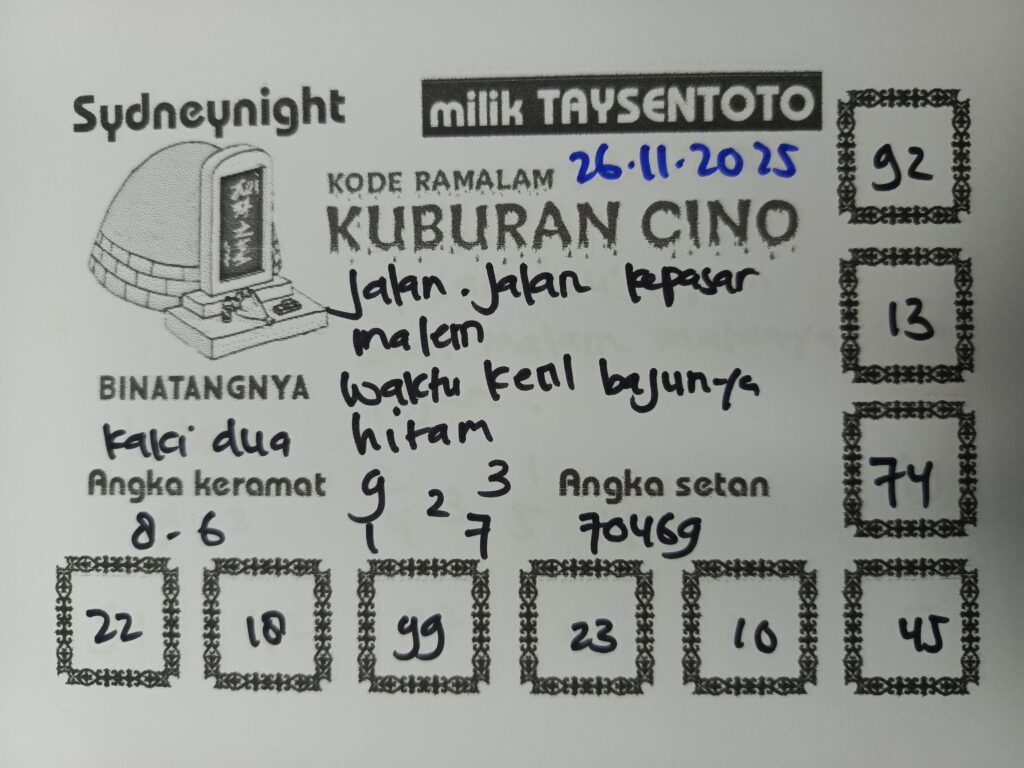 Sydneynight
milik TAYSENTOTO
26.11.2025
KODE RAMALAM
KUBURAN CINO
Jalan. Jalan kepasar
malem
waktu kecil bajunya
hitam
BINATANGNYA
kaki dua
Angka keramat
8-6
9 3
2
1 7
Angka setan
70469
92
13
74
22
18
99
23
10
45